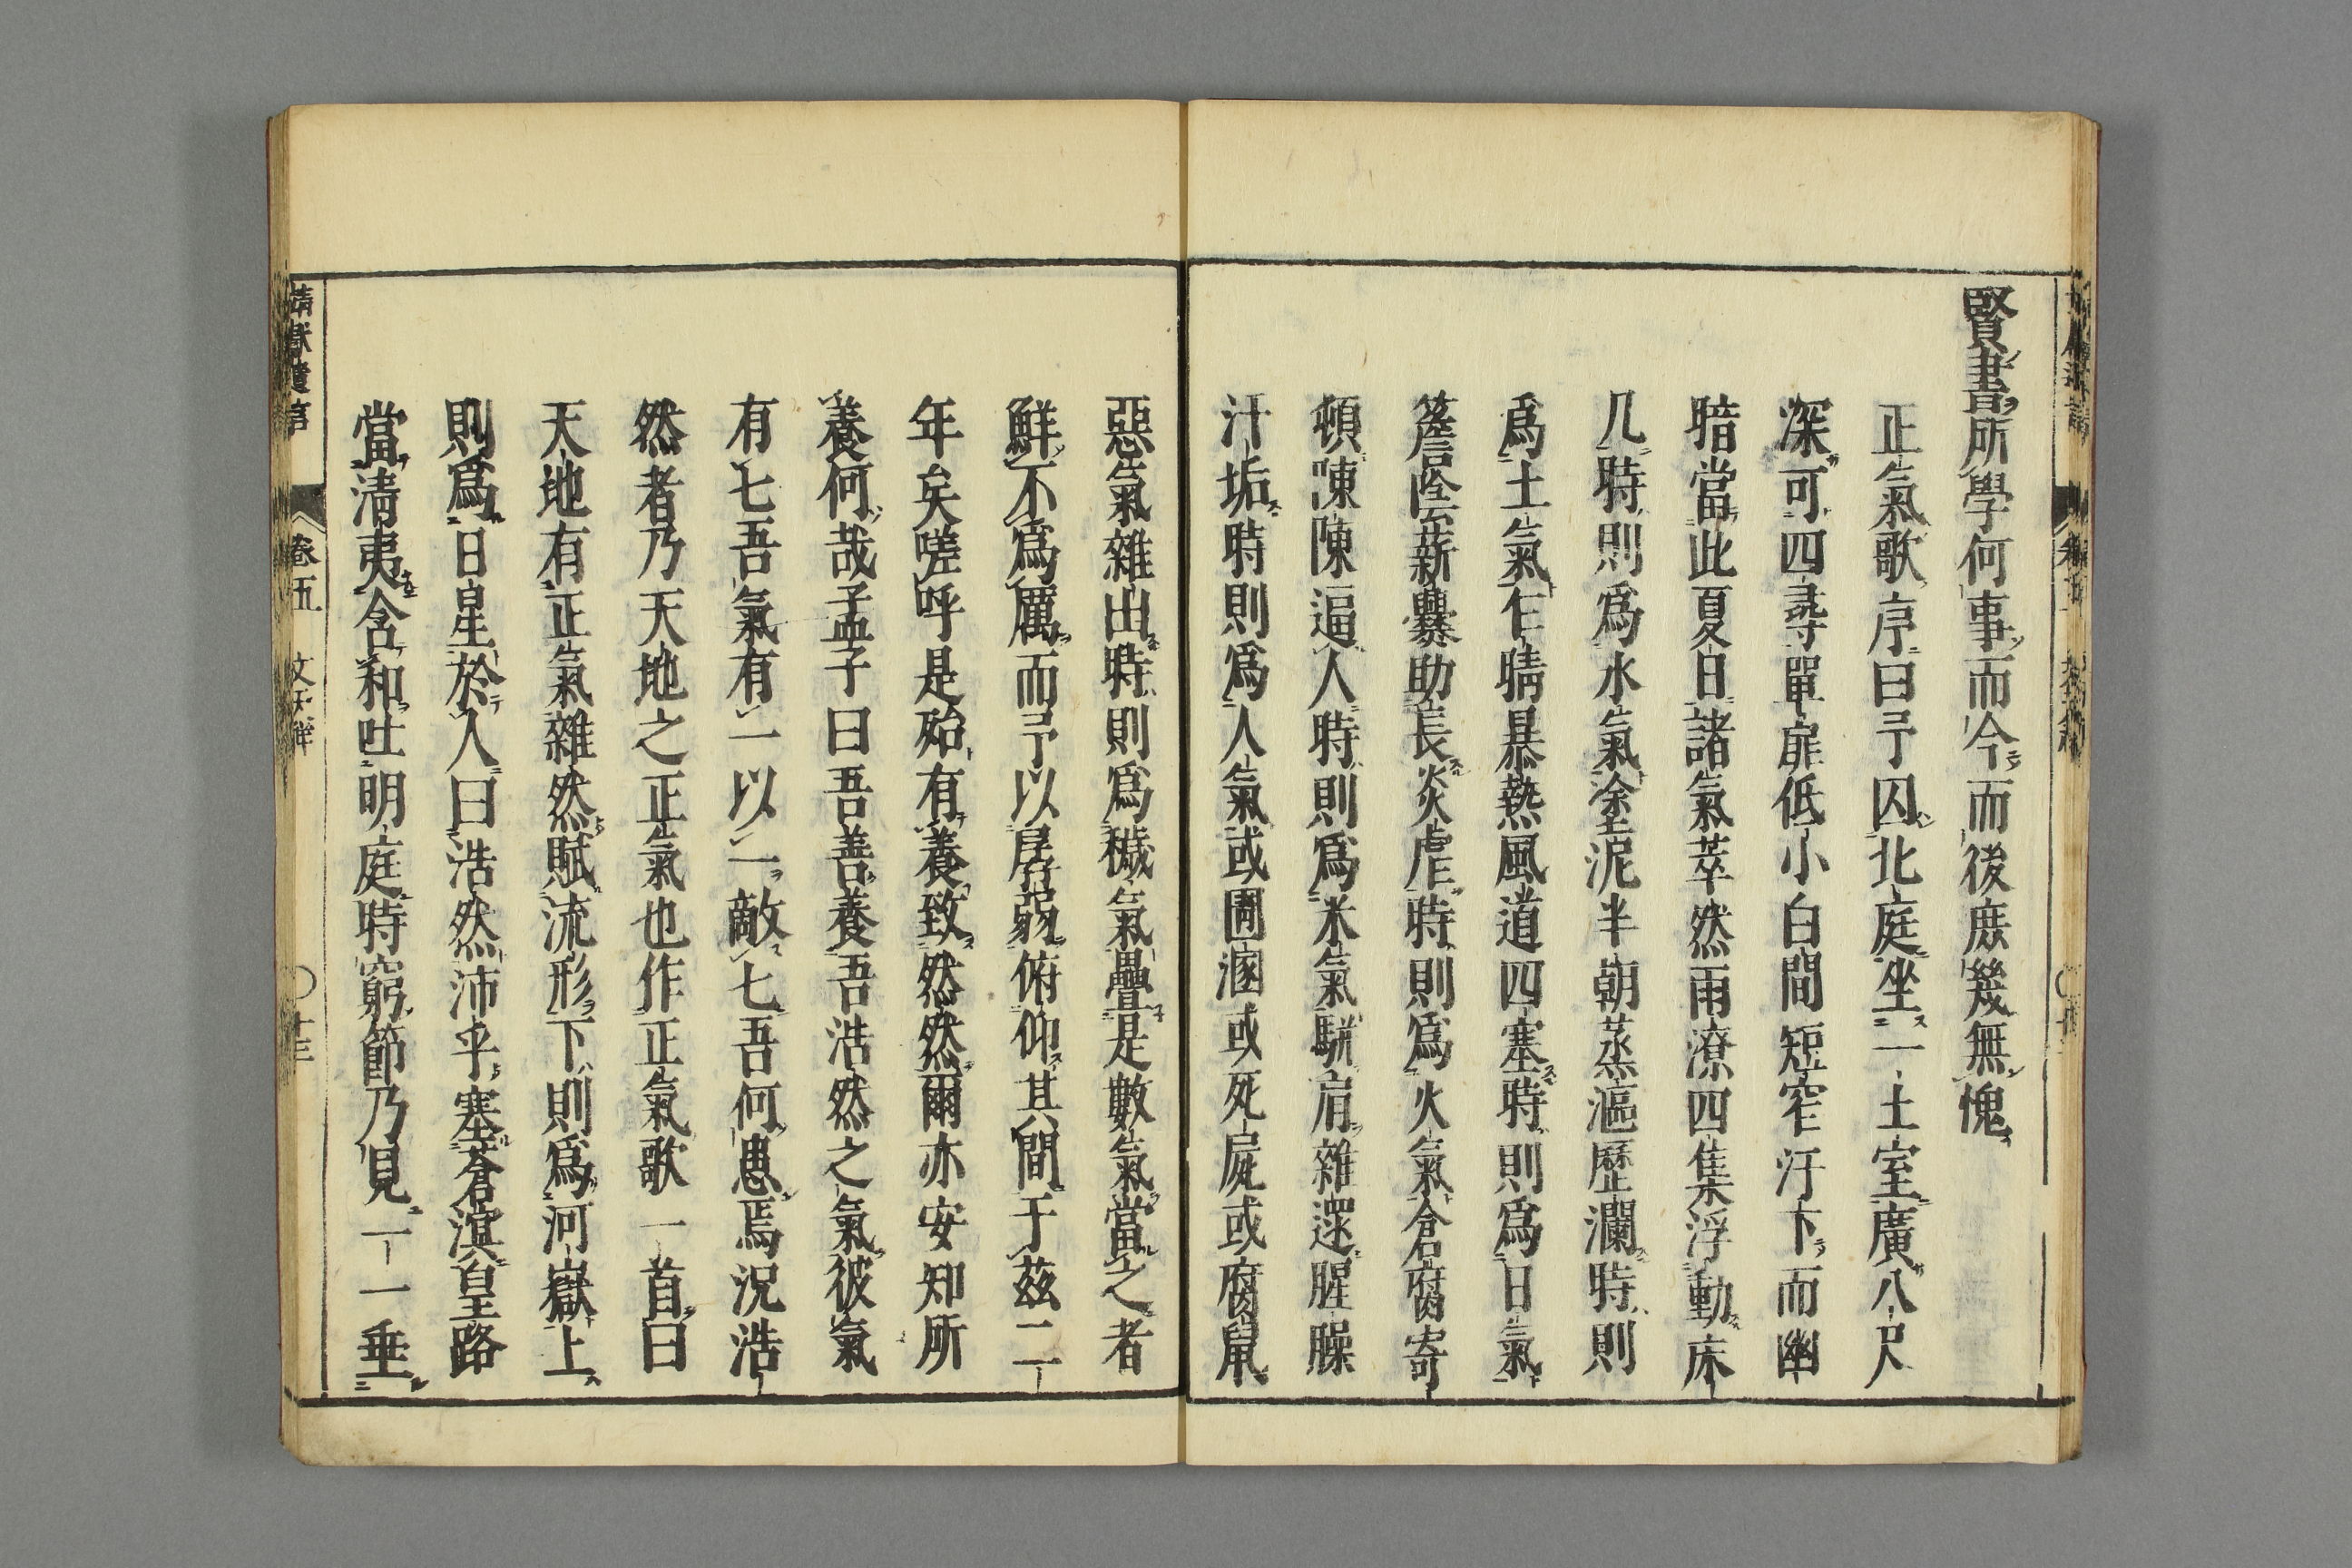 賢書所學何事而今而後庶幾無愧
正氣歌序曰予囚北庭坐一土室廣八尺
深可四尋單扉低小白間短窄汙下而幽
暗當此夏日諸氣萃然雨潦四集浮動床
几時則爲水氣塗泥半朝蒸漚歷瀾時則
爲土氣乍晴暴熱風道四塞時則爲日氣
簷陰薪爨助長炎虐時則爲火氣倉腐寄
頓陳陳逼人時則爲米氣駢肩雜遝腥臊
汗垢時則爲人氣或圊溷或死屍或腐鼠
惡氣雜出時則爲穢氣疊是數氣當之者
鮮不爲厲而予以孱弱俯仰其間于茲二
年矣嗟呼是殆有養致然然爾亦安知所
養何哉孟子曰吾善養吾浩然之氣彼氣
有七吾氣有一以一敵七吾何患焉況浩
然者乃天地之正氣也作正氣歌一首曰
天地有正氣雜然賦流形下則爲河嶽上
則爲日星於人曰浩然沛乎塞蒼溟皇路
當淸夷含和吐明庭時窮節乃見一一垂
靖獻遺言 卷五 文天祥 〇十三